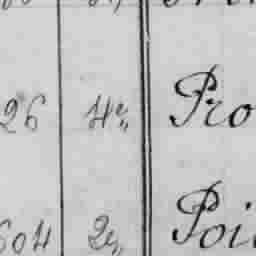 26 4e, Pro
604 2e, Poi